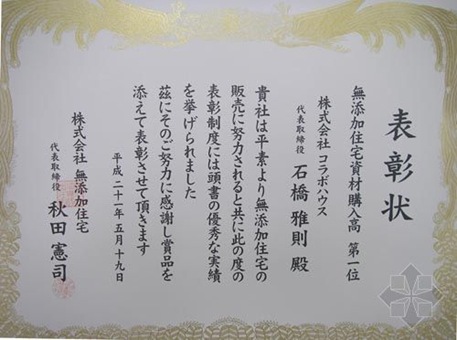 表彰状
無添加住宅資材購入高 第一位
株式会社 コラボハウス
代表取締役 石橋 雅則 殿
貴社は平素より無添加住宅の
販売に努力されると共に此の度の
表彰制度には頭書の優秀な実績
を挙げられました
茲にそのご努力に感謝し賞品を
添えて表彰させて頂きます
平成二十一年五月十九日
株式会社 無添加住宅
代表取締役 秋田 憲司